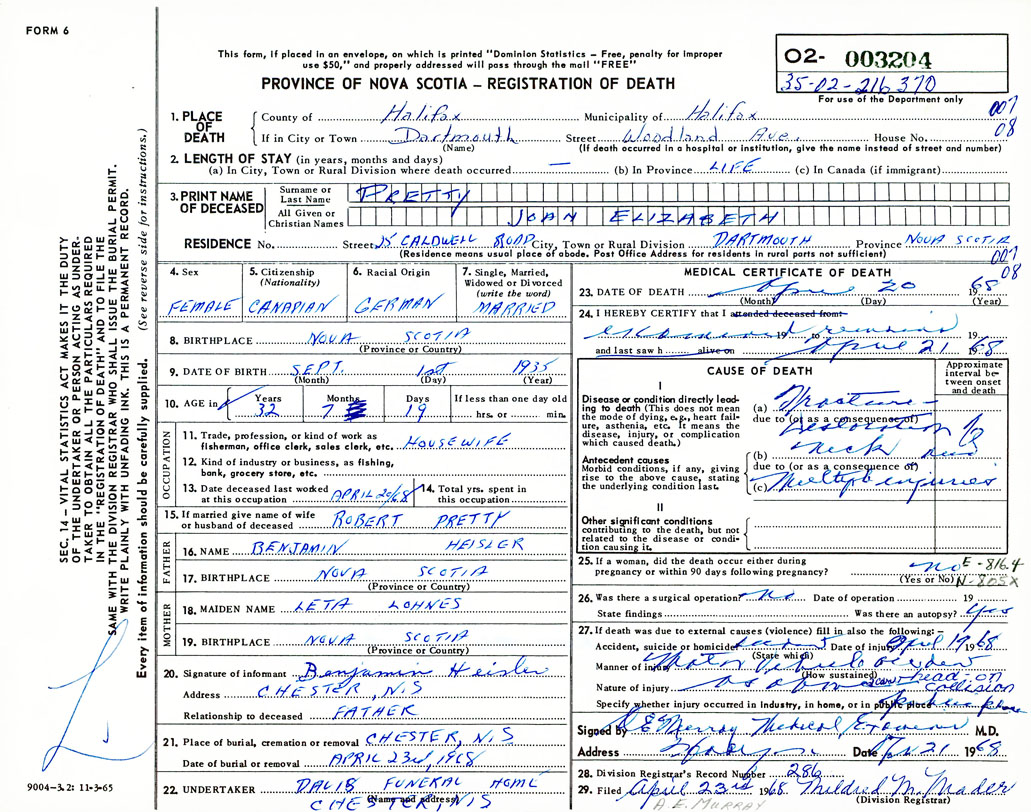 FORM 6
This form, if placed in an envelope, on which is printed "Dominion Statistics – Free, penalty for improper
use $50," and properly addressed will pass through the mail "FREE"
PROVINCE OF NOVA SCOTIA – REGISTRATION OF DEATH
02- 003204
35-02-216370
For use of the Department only
007
08
1. PLACE OF DEATH
County of Halifax Municipality of Halifax
If in City or Town Dartmouth Street Woodland Ave. House No.
(Name) (If death occurred in a hospital or institution, give the name instead of street and number)
2. LENGTH OF STAY (in years, months and days)
(a) In City, Town or Rural Division where death occurred — (b) In Province LIFE (c) In Canada (if immigrant)
3. PRINT NAME OF DECEASED
Surname or Last Name PRETTY
All Given or Christian Names JOAN ELIZABETH
RESIDENCE No. Street 25 CALDWELL ROAD City, Town or Rural Division DARTMOUTH Province NOVA SCOTIA
(Residence means usual place of abode. Post Office Address for residents in rural parts not sufficient)
007
08
4. Sex FEMALE
5. Citizenship (Nationality) CANADIAN
6. Racial Origin GERMAN
7. Single, Married, Widowed or Divorced (write the word) MARRIED
8. BIRTHPLACE NOVA SCOTIA
(Province or Country)
9. DATE OF BIRTH SEPT. 1st 1935
(Month) (Day) (Year)
10. AGE in Years 32 Months 7 Days 19 If less than one day old hrs. or min.
OCCUPATION
11. Trade, profession, or kind of work as
fisherman, office clerk, sales clerk, etc. HOUSEWIFE
12. Kind of industry or business, as fishing,
bank, grocery store, etc.
13. Date deceased last worked
at this occupation APRIL 20/68
14. Total yrs. spent in
this occupation
15. If married give name of wife
or husband of deceased ROBERT PRETTY
FATHER
16. NAME BENJAMIN HEISLER
17. BIRTHPLACE NOVA SCOTIA
(Province or Country)
MOTHER
18. MAIDEN NAME LETA LOHNES
19. BIRTHPLACE NOVA SCOTIA
(Province or Country)
20. Signature of informant Benjamin Heisler
Address CHESTER, N.S
Relationship to deceased FATHER
21. Place of burial, cremation or removal CHESTER, N.S
Date of burial or removal APRIL 23rd, 1968
22. UNDERTAKER DAVIS FUNERAL HOME
(Name and address) CHESTER, N.S
MEDICAL CERTIFICATE OF DEATH
23. DATE OF DEATH April 20 1968
(Month) (Day) (Year)
24. I HEREBY CERTIFY that I attended deceased from
examined 19 to remains 19
and last saw h alive on April 21 1968
CAUSE OF DEATH
Approximate interval between onset and death
I
Disease or condition directly leading to death (This does not mean the mode of dying, e.g., heart failure, asthenia, etc. It means the disease, injury, or complication which caused death.)
(a) Fracture -
due to (or as a consequence of)
Antecedent causes
Morbid conditions, if any, giving rise to the above cause, stating the underlying condition last.
(b) neck
due to (or as a consequence of)
(c) Multiple injuries
II
Other significant conditions
contributing to the death, but not related to the disease or condition causing it.
25. If a woman, did the death occur either during
pregnancy or within 90 days following pregnancy? no
(Yes or No)
E-816.4
N-805X
26. Was there a surgical operation? No Date of operation 19
State findings Was there an autopsy? Yes
27. If death was due to external causes (violence) fill in also the following:–
Accident, suicide or homicide Date of injury April 1968
(State which)
Manner of injury Motor Vehicle accident
(How sustained)
Nature of injury as above
cars head-on collision
Specify whether injury occurred in Industry, in home, or in public place
Signed by E Murray Medical Examiner M.D.
Address Date 21 1968
28. Division Registrar's Record Number 286
29. Filed April 23rd 1968 Mildred M. Mader
(Division Registrar)
A. E. MURRAY
SEC. 14 – VITAL STATISTICS ACT MAKES IT THE DUTY
OF THE UNDERTAKER OR PERSON ACTING AS UNDER-
TAKER TO OBTAIN ALL THE PARTICULARS REQUIRED
IN THE "REGISTRATION OF DEATH" AND TO FILE THE
SAME WITH THE DIVISION REGISTRAR WHO SHALL ISSUE THE BURIAL PERMIT.
WRITE PLAINLY WITH UNFADING INK. THIS IS A PERMANENT RECORD.
Every item of information should be carefully supplied. (See reverse side for instructions.)
9004-3.2: 11-3-65